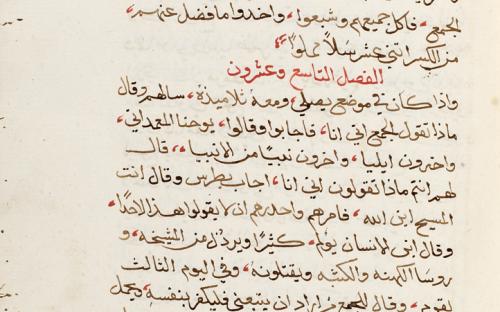 الجميع، فاكل جميعهم وشبعوا، واخذوا ما فضل عنهم
من الكسر اثني عشر سلاً مملوًا
الفصل التاسع وعشرون
واذ كان في موضع يصلي، ومعه تلاميذه، سالهم وقال
ماذا تقول الجمع اني انا، فاجابوا وقالوا، يوحنا المعمداني،
واخرون ايليا، واخرون نبيًا من الانبيا، قال
لهم انتم ماذا تقولون اني انا، اجاب بطرس وقال انت
المسيح ابن الله، فامرهم وحذرهم ان لا يقولوا هذا لاحدًا،
وقال ابن الانسان يولم كثيرًا ويرذل من المشيخه، و
روسا الكهنه والكتبه ويقتلونه، وفي اليوم الثالث
يقوم، وقال للجميع من اراد ان يتبعني فليكفر بنفسه ويحمل